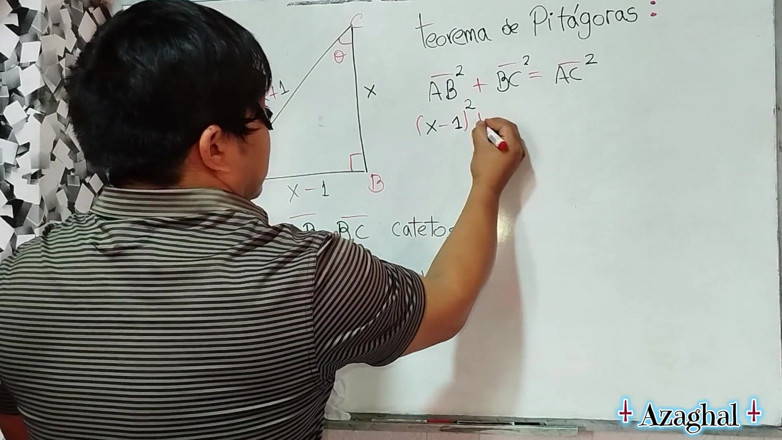 teorema de Pitágoras:
C
θ
+1
x
AB² + BC² = AC²
(x-1)² +
B
x-1
BC catetos
† Azaghal †